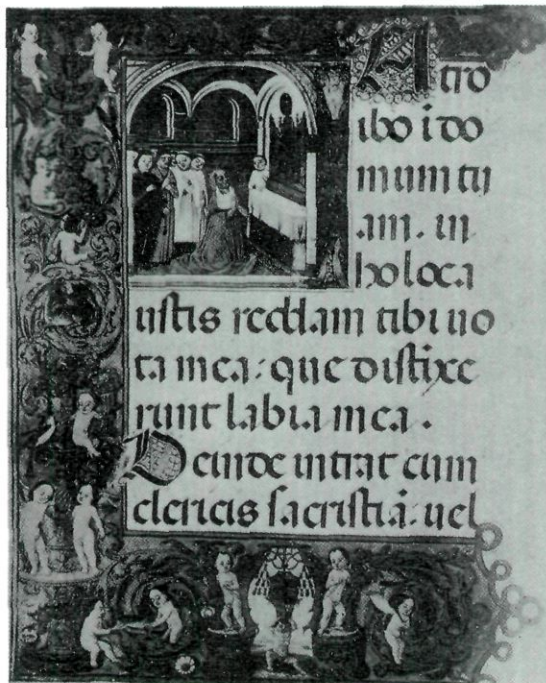 Atrō
ibo i do
mum tu
am. in
holoca
ustis reddam tibi uo
ta mea: que distixe
runt labia mea.
Deinde intrat cum
clericis sacristiā. uel